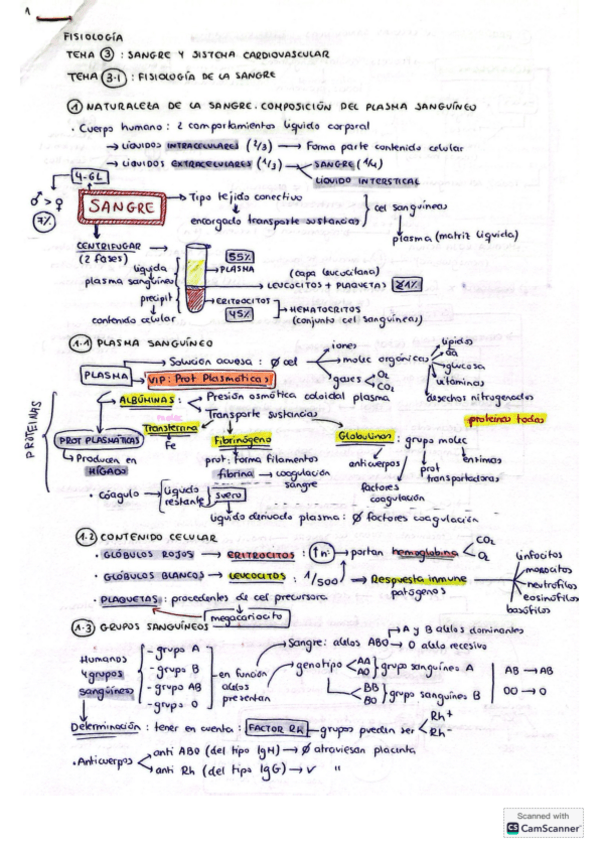 1
FISIOLOGÍA
TEMA 3 : SANGRE Y SISTEMA CARDIOVASCULAR
TEMA 3.1 : FISIOLOGÍA DE LA SANGRE
1 NATURALEZA DE LA SANGRE. COMPOSICIÓN DEL PLASMA SANGUÍNEO
· Cuerpo humano : 2 comportamientos líquido corporal
→ LÍQUIDOS INTRACELULARES (2/3) → Forma parte contenido celular
→ LÍQUIDOS EXTRACELULARES (1/3) → SANGRE (1/4)
LÍQUIDO INTERSTICIAL
4-6L
♂ > ♀
7%
SANGRE → Tipo tejido conectivo
encargado transporte sustancias
cel sanguíneas
plasma (matriz líquida)
CENTRIFUGAR →
(2 fases)
líquida
plasma sanguíneo
precipit
contenido celular
55%
→ PLASMA
(capa leucocitaria)
→ LEUCOCITOS + PLAQUETAS ≥1%
→ ERITROCITOS
45%
→ HEMATOCRITOS
(conjunto cel sanguíneas)
1.1 PLASMA SANGUÍNEO
PLASMA → Solución acuosa : Ø cel
iones
molec orgánicas
gases
O2
CO2
lípidos
aa
glucosa
vitaminas
desechos nitrogenados
VIP: Prot Plasmáticas
proteínas todas
PROTEÍNAS
PROT PLASMÁTICAS
→ Producen en
HÍGADO
ALBÚMINAS : → Presión osmótica coloidal plasma
Transporte sustancias
molec
Transferrina
Fe
Fibrinógeno
prot: forma filamentos
fibrina → coagulación
sangre
Globulinas : grupo molec
anticuerpos
factores
coagulación
prot
transportadoras
enzimas
· Coágulo → Líquido
restante
suero
líquido derivado plasma : Ø factores coagulación
1.2 CONTENIDO CELULAR
· GLÓBULOS ROJOS → ERITROCITOS : ↑nº → portan hemoglobina
CO2
O2
· GLÓBULOS BLANCOS → LEUCOCITOS : 1/500 → Respuesta inmune
patógenos
linfocitos
monocitos
neutrófilos
eosinófilos
basófilos
· PLAQUETAS : procedentes de cel precursora
megacariocito
1.3 GRUPOS SANGUÍNEOS
Humanos
4 grupos
sangüíneos
- grupo A
- grupo B
- grupo AB
- grupo O
en función
alelos
presentan
Sangre: alelos ABO → A y B alelos dominantes
→ O alelo recesivo
genotipo
AA
AO
grupo sanguíneo A
BB
BO
grupo sanguíneos B
AB → AB
OO → O
Determinación : tener en cuenta : FACTOR RH → grupos pueden ser
Rh+
Rh-
· Anticuerpos
anti ABO (del tipo IgM) → Ø atraviesan placenta
anti Rh (del tipo IgG) → ✓ "
Scanned with
CS CamScanner